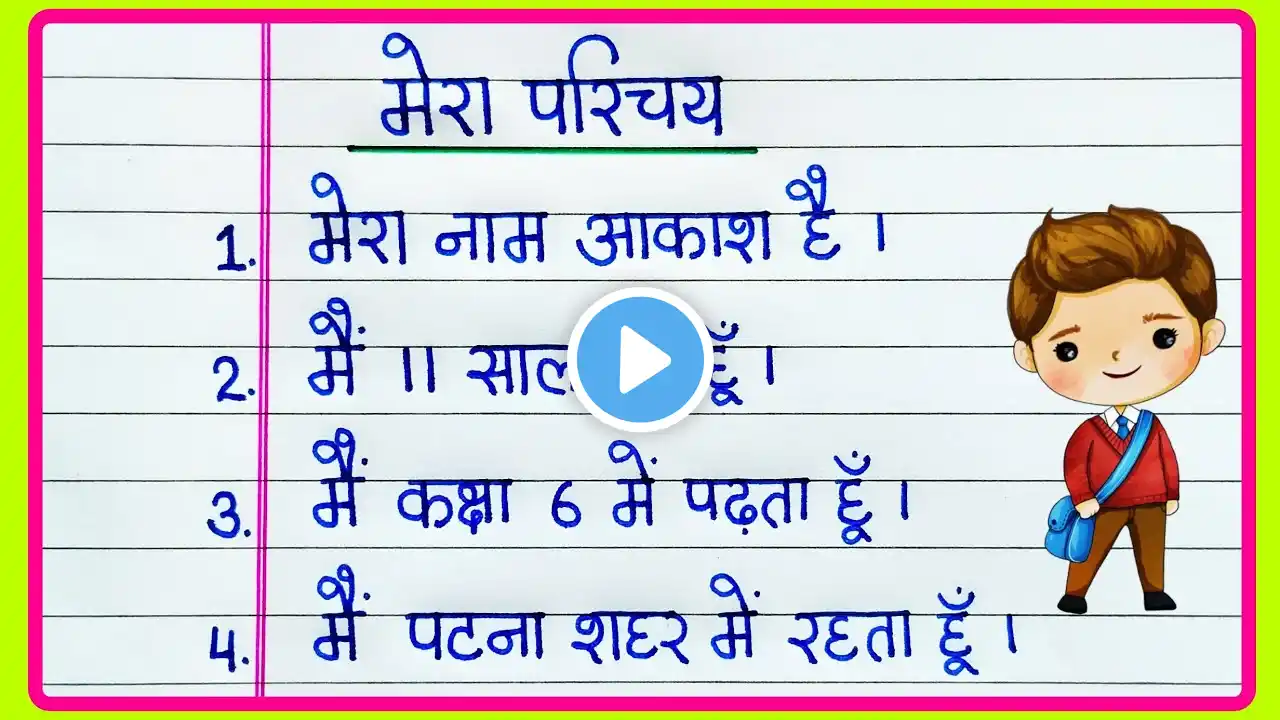 मेरा परिचय
1. मेरा नाम आकाश है ।
2. मैं 11 साल हूँ ।
3. मैं कक्षा 6 में पढ़ता हूँ ।
4. मैं पटना शहर में रहता हूँ ।